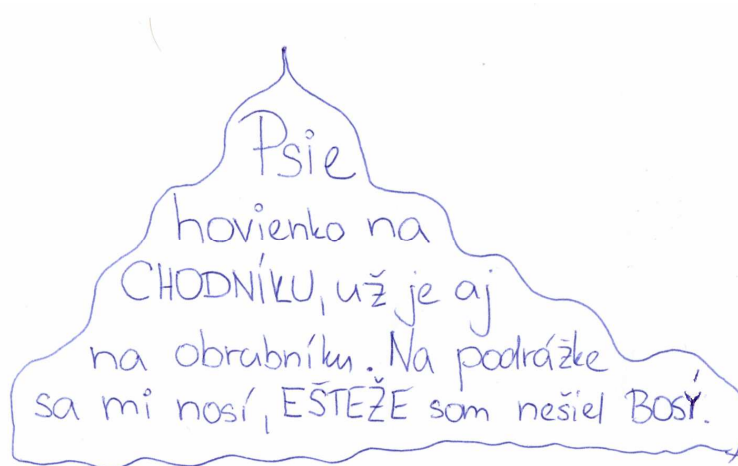 Psie
hovienko na
CHODNÍKU, už je aj
na obrubníku. Na podrážke
sa mi nosí, EŠTEŽE som nešiel BOSÝ.